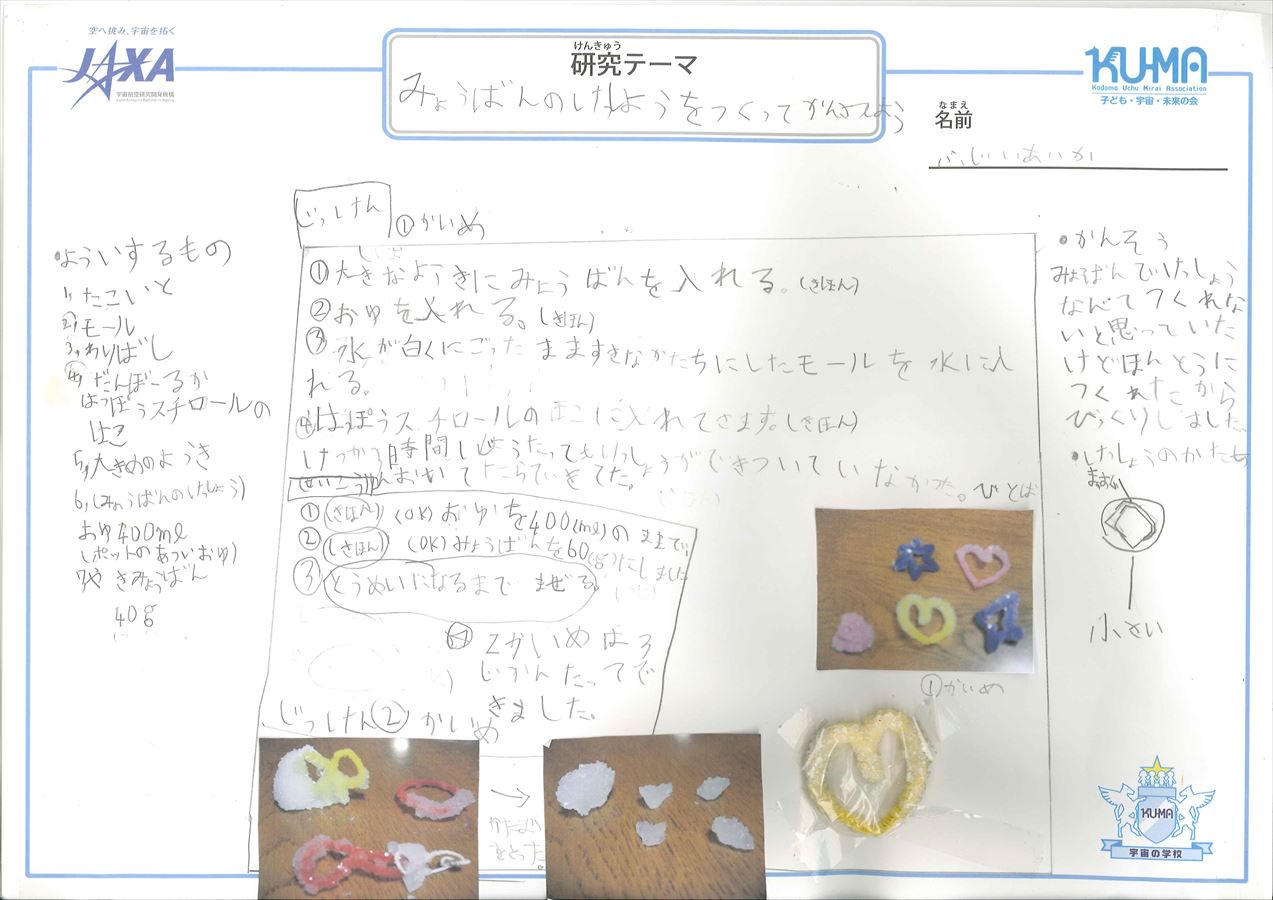 空へ挑み、宇宙を拓く
JAXA
宇宙航空研究開発機構
けんきゅう
研究テーマ
みょうばんのけしょうをつくってかんさつしよう
KU-MA
Kodomo Uchu Mirai Association
子ども・宇宙・未来の会
なまえ
名前
ふじいあいか
・よういするもの
1,たこいと
2,モール
3,わりばし
4,だんぼーるか
はっぽうスチロールの
はこ
5,大きめのようき
6,(みょうばんのけっしょう)
おゆ400ml
(ポットのあついおゆ)
7,やきみょうばん
40g
じっけん
①かいめ
①大きなようきにみょうばんを入れる。(きほん)
②おゆを入れる。(きほん)
③水が白くにごったまますきなかたちにしたモールを水に入
れる。
④はっぽうスチロールのはこに入れてさます。(きほん)
けっか1時間いじょうたってもけっしょうができついていなかった。ひとば
んおいてたらていをてた。
①(きほん)(OK)おゆを400(ml)のままで
②(きほん)(OK)みょうばんを60(g)にしました
③とうめいになるまでまぜる。
2かいめは3
じかんたってで
きました。
じっけん②かいめ
→
かたまり
をとった。
①かいめ
・かんそう
みょうばんでけっしょう
なんてつくれな
いと思っていた
けどほんとうに
つくれたから
びっくりしました。
・けっしょうのかたち
小さい
KUMA
宇宙の学校